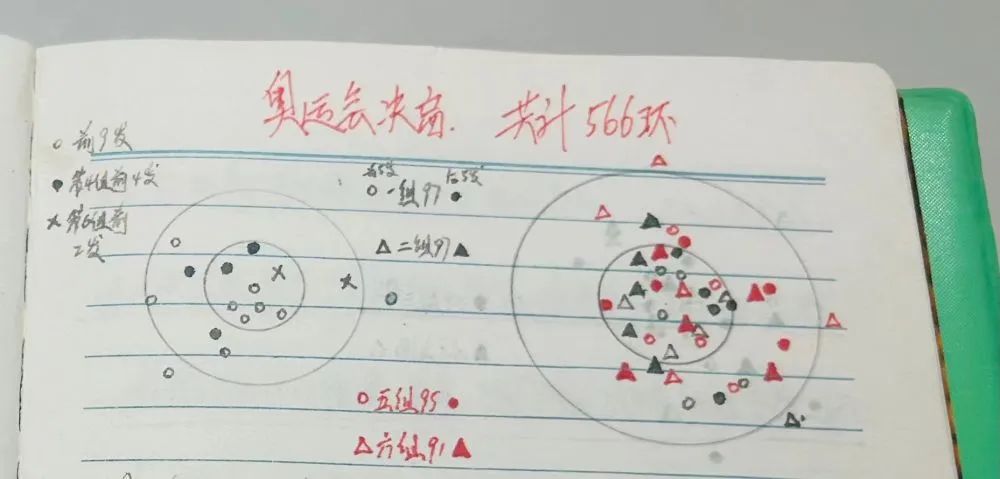 奥运会决赛. 共计566环
○ 前9发
● 第4组前4发
× 第6组前
2发
前5发 后5发
○ 一组97 ●
△ 二组97 ▲
○ 五组95 ●
△ 六组91 ▲